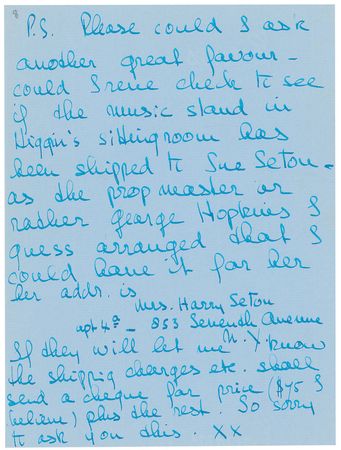 8
P.S. Please could I ask
another great favour -
could Irene check to see
if the music stand in
Higgin's sittingroom has
been shipped to Sue Seton -
as the prop master or
rather George Hopkins I
guess arranged that I
could have it for her
her addr. is
Mrs. Harry Seton
apt 4a - 853 Seventh Avenue
N.Y.
If they will let me know
the shipping charges etc. shall
send a cheque for price ($75 I
believe) plus the rest. So sorry
to ask you this. XX